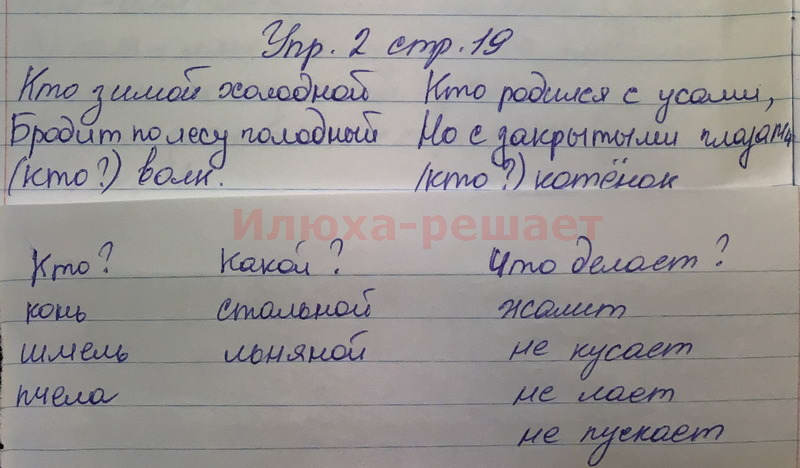 Упр. 2 стр. 19
Кто зимой холодной
Бродит по лесу голодный
(кто?) волк.
Кто родился с усами,
Но с закрытыми глазами
(кто?) котёнок
Илюха-решает
Кто? Какой? Что делает?
конь стальной жалит
шмель льняной не кусает
пчела не лает
не пускает